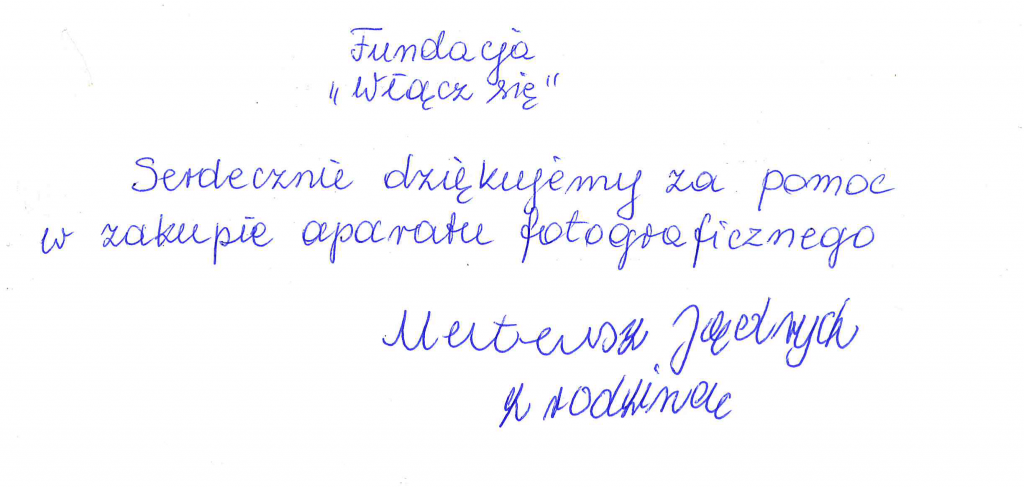 Fundacja
„Włącz się"
Serdecznie dziękujemy za pomoc
w zakupie aparatu fotograficznego
Mateusz
z rodziną